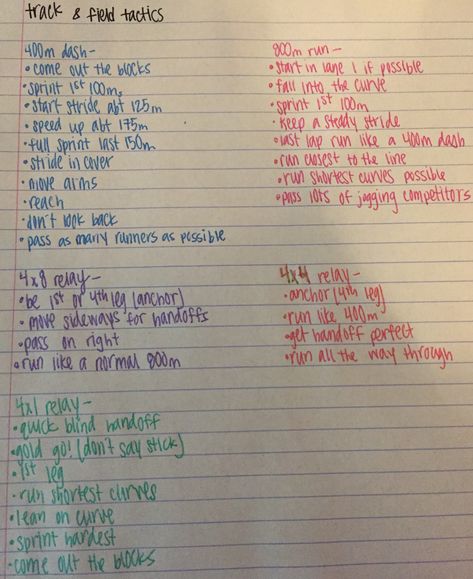 track & field tactics
400m dash-
• come out the blocks
• sprint 1st 100m
• start stride abt 125m
• speed up abt 175m
• full sprint last 150m
• stride in cover
• move arms
• reach
• don't look back
• pass as many runners as possible
800m run-
• start in lane 1 if possible
• fall into the curve
• sprint 1st 100m
• keep a steady stride
• last lap run like a 400m dash
• run closest to the line
• run shortest curves possible
• pass lots of jogging competitors
4x8 relay-
• be 1st or 4th leg (anchor)
• move sideways for handoffs
• pass on right
• run like a normal 800m
4x4 relay-
• anchor (4th leg)
• run like 400m
• get handoff perfect
• run all the way through
4x1 relay-
• quick blind handoff
• gold go! (don't say stick)
• 1st leg
• run shortest curves
• lean on curve
• sprint hardest
• come out the blocks